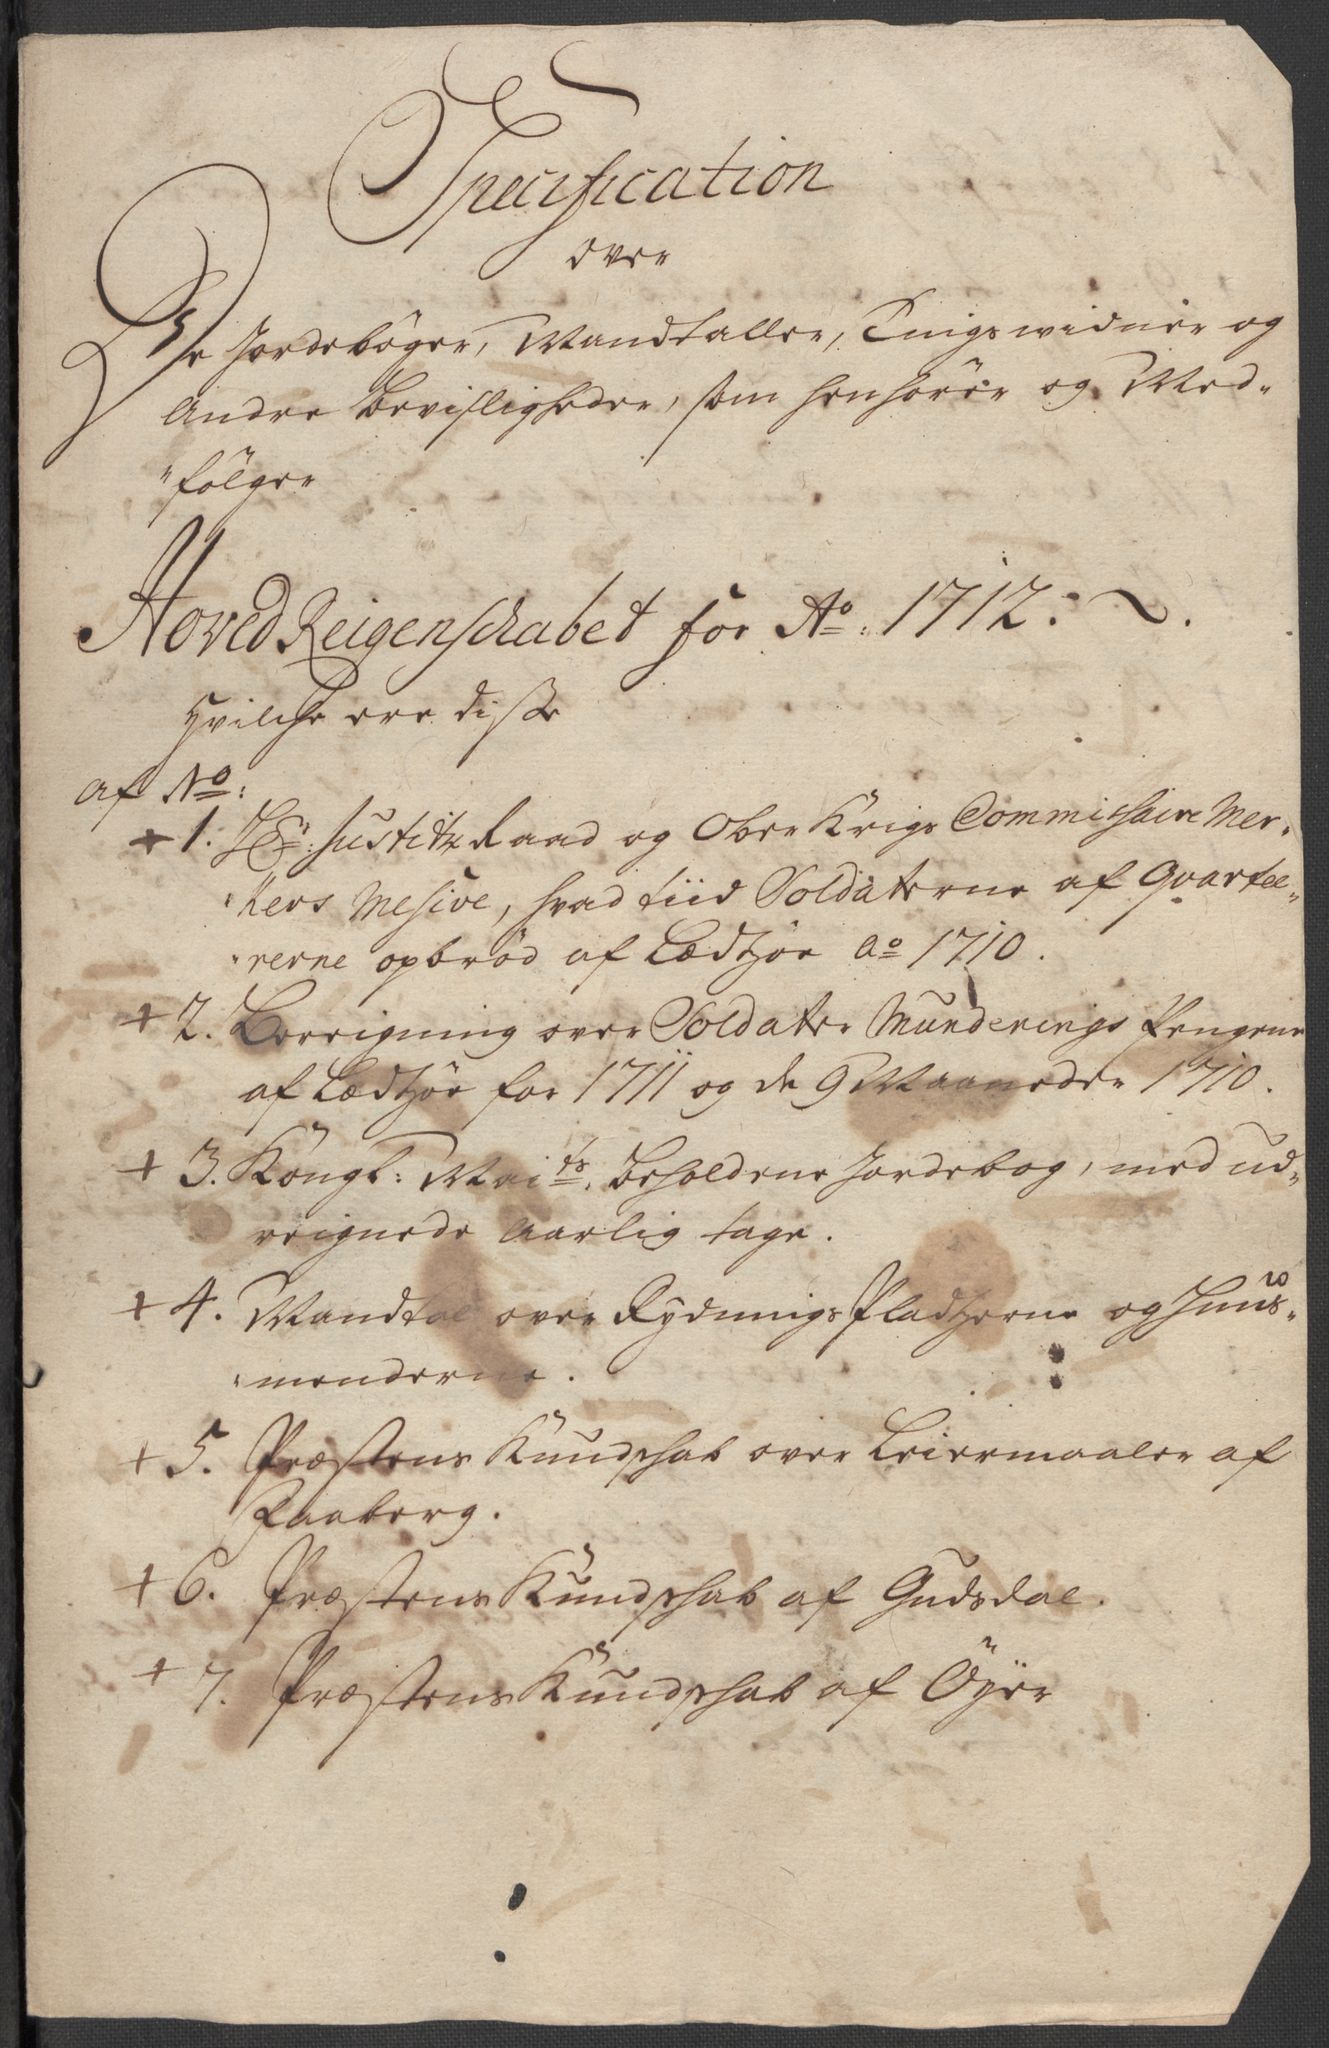 Specification
over
De Jordebøger, Mandtaller, Tingswidner og
Andre Bevisligheder, som henhører og Med-
"følger
Hoved Reigenschabet for Ao: 1712:
Hvilche ere disse
af No:
+ 1. Hr: Justitz Raad og Ober Krigs Commissaire Mer-
"kers Mesive, hvad tiid Soldaterne af Qvartee-
"rerne opbrød af Lædtzør ao 1710.
+ 2. Bereigning over Soldater Munderings Pengene
af Lædtzør for 1711 og de 9 Maaneder 1710.
+ 3. Kongl: Maits: beholdene Jordebog, med ud-
reignede Aarlig tage.
+ 4. Mandtal over Rydnings Pladtzerne og Huus-
"menderne.
+ 5. Præstens Kundschab over Leiermaaler af
Faaberg.
+ 6. Præstens Kundschab af Gudsdal.
+ 7. Præstens Kundschab af Öyer